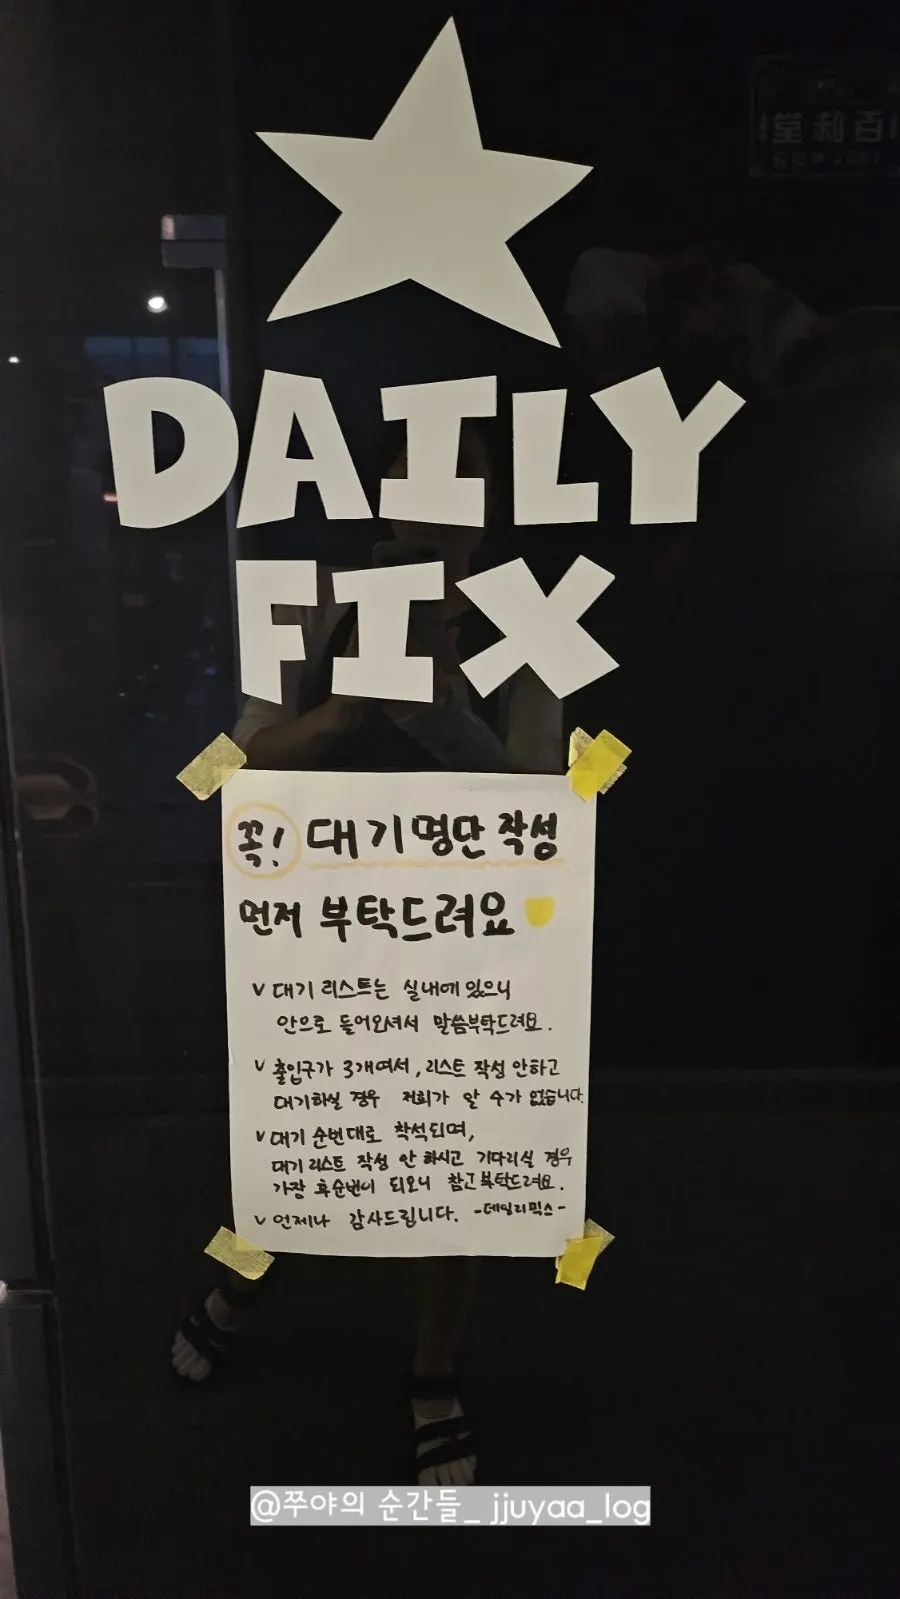 DAILY
FIX
꼭! 대기명단 작성
먼저 부탁드려요
v 대기 리스트는 실내에 있으니
안으로 들어오셔서 말씀부탁드려요.
v 출입구가 3개여서, 리스트 작성 안하고
대기하실 경우 저희가 알 수가 없습니다.
v 대기 순번대로 착석되며,
대기리스트 작성 안 하시고 기다리실 경우
가장 후순번이 되오니 참고부탁드려요.
v 언제나 감사드립니다. -데일리픽스-
@쭈야의 순간들_ jjuyaa_log